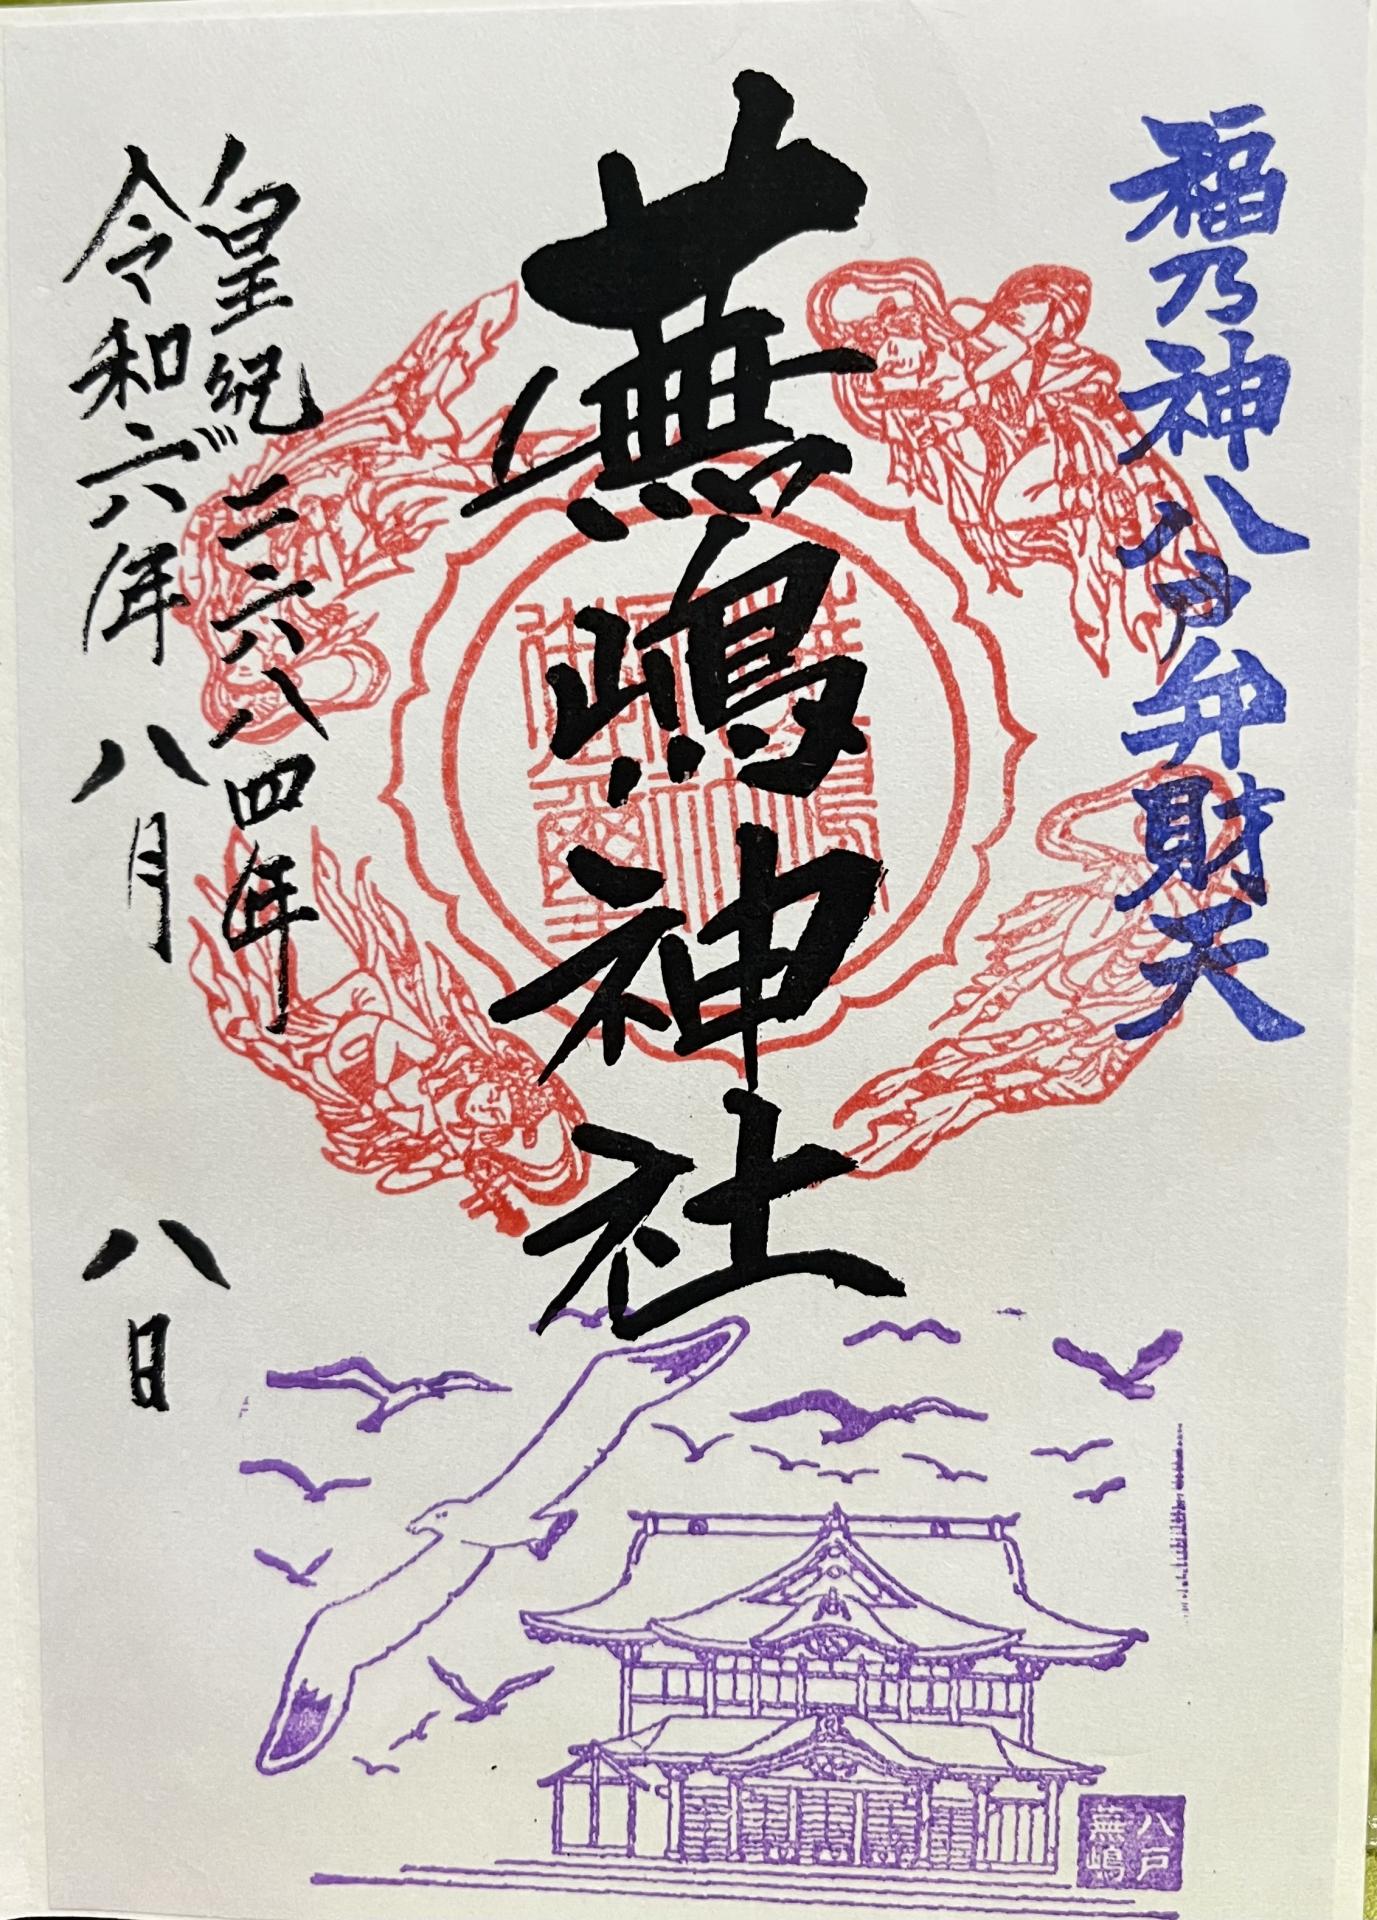 福乃神八戸弁財天
蕪嶋神社
皇紀二六八四年
令和六年八月八日
八戸
蕪嶋